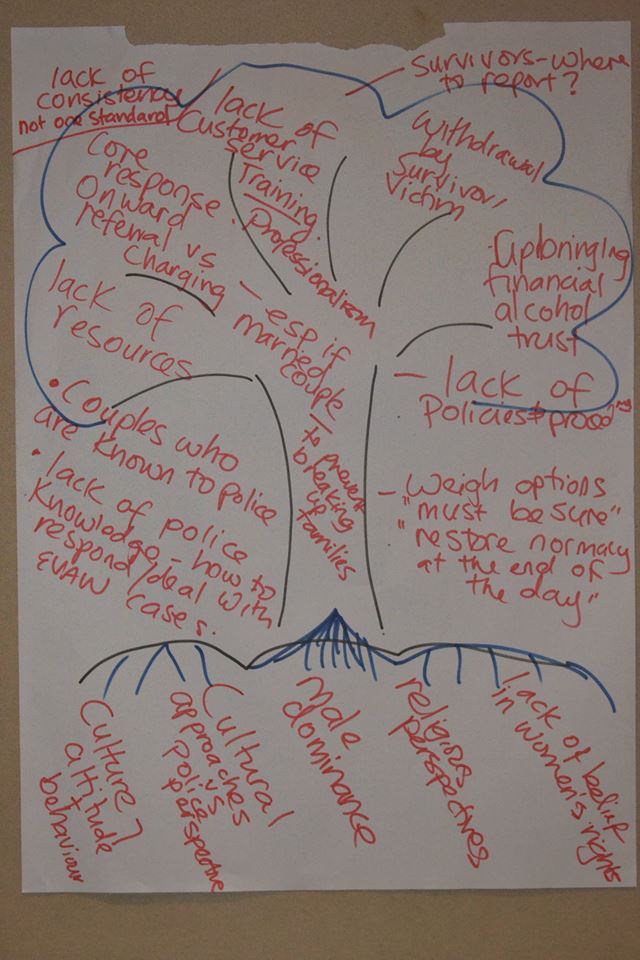 lack of
consistency
not one standard
lack of
Customer
service
Training.
Professionalism
Survivors-where
to report?
Withdrawal
by
Survivor/
Victim
Core
response.
Onward
referral vs
Charging
financial
alcohol
trust
lack of
resources
- esp if
married
couple
- to prevent
breaking
up
families
- lack of
Policies &
• Couples who
are known to police
• lack of police
Knowledge - how to
respond/deal with
EVAW cases.
- Weigh options
"must be sure"
"restore normacy
at the end of
the day"
Culture?
attitude
+
behaviour
Cultural
approaches
vs
police
perspective
Male
dominance
religious
perspectives
lack of belief
in women's rights